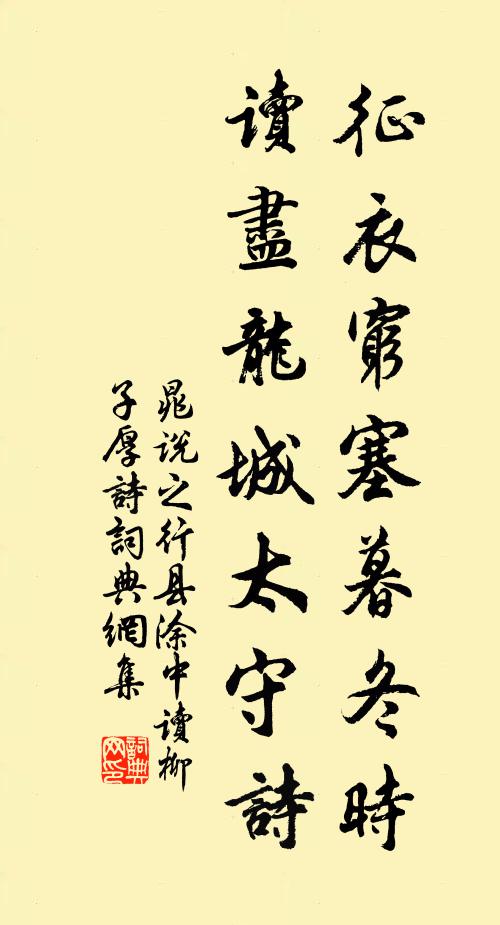 征衣窮塞暮冬時
讀盡龍城太守詩
晁说之行县涂中讀柳
子厚詩詞典網集
詞典网印